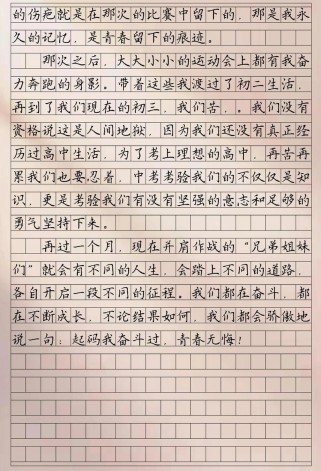 的伤疤就是在那次的比赛中留下的，那是我永
久的记忆，是青春留下的痕迹。
那次之后，大大小小的运动会上都有我奋
力奔跑的身影。带着这些我渡过了初二生活，
再到了我们现在的初三，我们苦，。我们没有
资格说这是人间地狱，因为我们还没有真正经
历过高中生活，为了考上理想的高中，再苦再
累我们也要忍着，中考考验我们的不仅仅是知
识，更是考验我们有没有坚强的意志和足够的
勇气坚持下来。
再过一个月，现在并肩作战的“兄弟姐妹
们”就会有不同的人生，会踏上不同的道路，
各自开启一段不同的征程。我们都在奋斗，都
在不断成长，不论结果如何，我们都会骄傲地
说一句：起码我奋斗过，青春无悔！